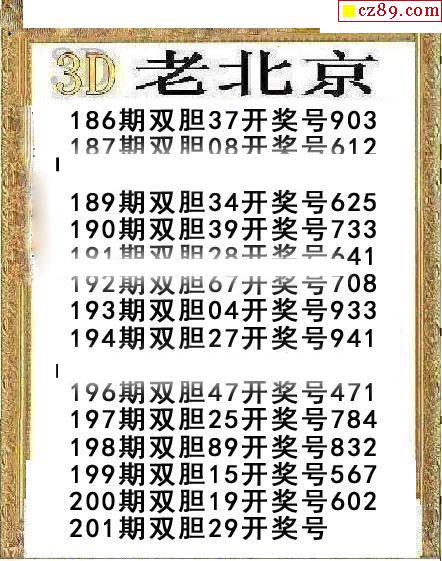 cz89.com
3D 老北京
186期双胆37开奖号903
187期双胆08开奖号612
189期双胆34开奖号625
190期双胆39开奖号733
191期双胆28开奖号641
192期双胆67开奖号708
193期双胆04开奖号933
194期双胆27开奖号941
196期双胆47开奖号471
197期双胆25开奖号784
198期双胆89开奖号832
199期双胆15开奖号567
200期双胆19开奖号602
201期双胆29开奖号